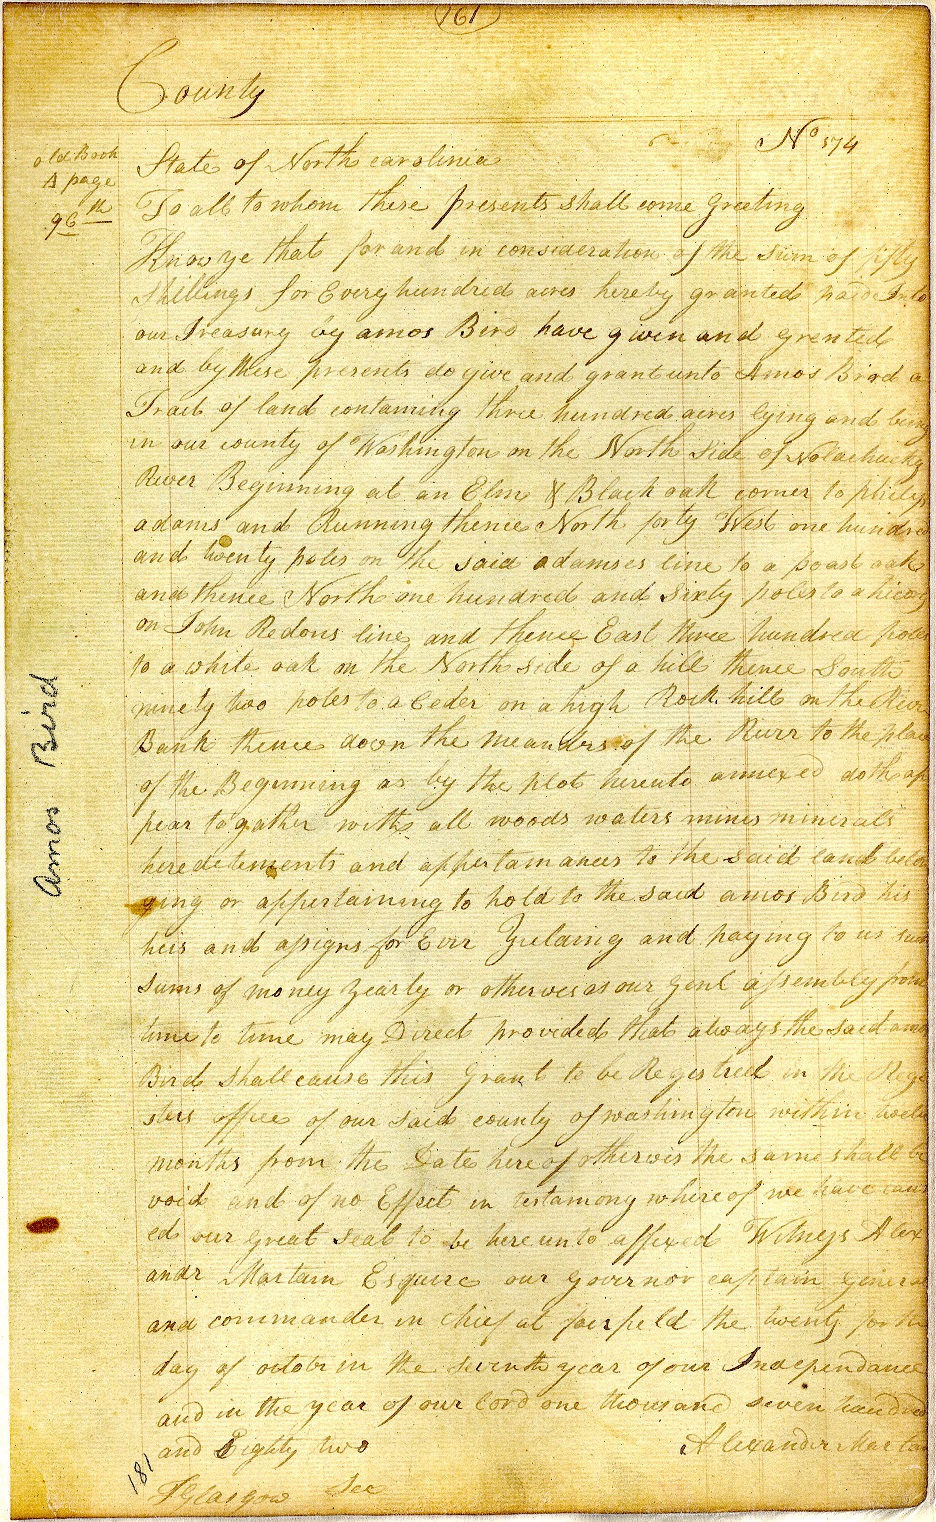 161
County
old Book
A page
96th
No 574
State of North carolinia
To all to whom these presents shall come Greeting
Know ye that for and in consideration of the sum of fifty
Shillings for Every hundred acres hereby granted paid Into
our Treasury by amos Bird have given and grented
and by these presents do give and grant unto Amos Bird a
Tract of land containing three hundred acres lying and being
in our county of Washington on the North Side of Nolachucky
River Beginning at an Elm & Black oak corner to
adams and Running thence North forty West one hundred
and twenty poles on the said adamses line to a poast oak
and thence North one hundred and Sixty poles to a hicory
on John Redons line and thence East three hundred poles
to a white oak on the North side of a hill thence South
ninety two poles to a Ceder on a high Rock hill on the River
Bank thence down the meanders of the Rivrr to the place
of the Beginning as by the plot hereunto annexed doth ap
pear together with all woods waters mines minerals
heredetements and appertainances to the said land belon
ging or appertaining to hold to the said amos Bird his
heis and assigns for Ever Yielding and paying to us such
sums of money yearly or otherwis as our Genl assembly from
time to time may Direct provided that always the said amos
Bird shall cause this Grant to be Registred in the Regi
sters office of our said county of washington within twelve
months from the Date hereof otherwis the same shall be
void and of no Effect in testamony whereof we have caus
ed our great seal to be hereunto affixed Witness Alex
andr Martain Esquire our Governor captain General
and commander in chief at fairfield the twenty forth
day of octobr in the seventh year of our Independance
and in the year of our lord one thousand seven hundred
and Eighty two
Alexander Martain
J Glasgow Sec
Amos Bird
181